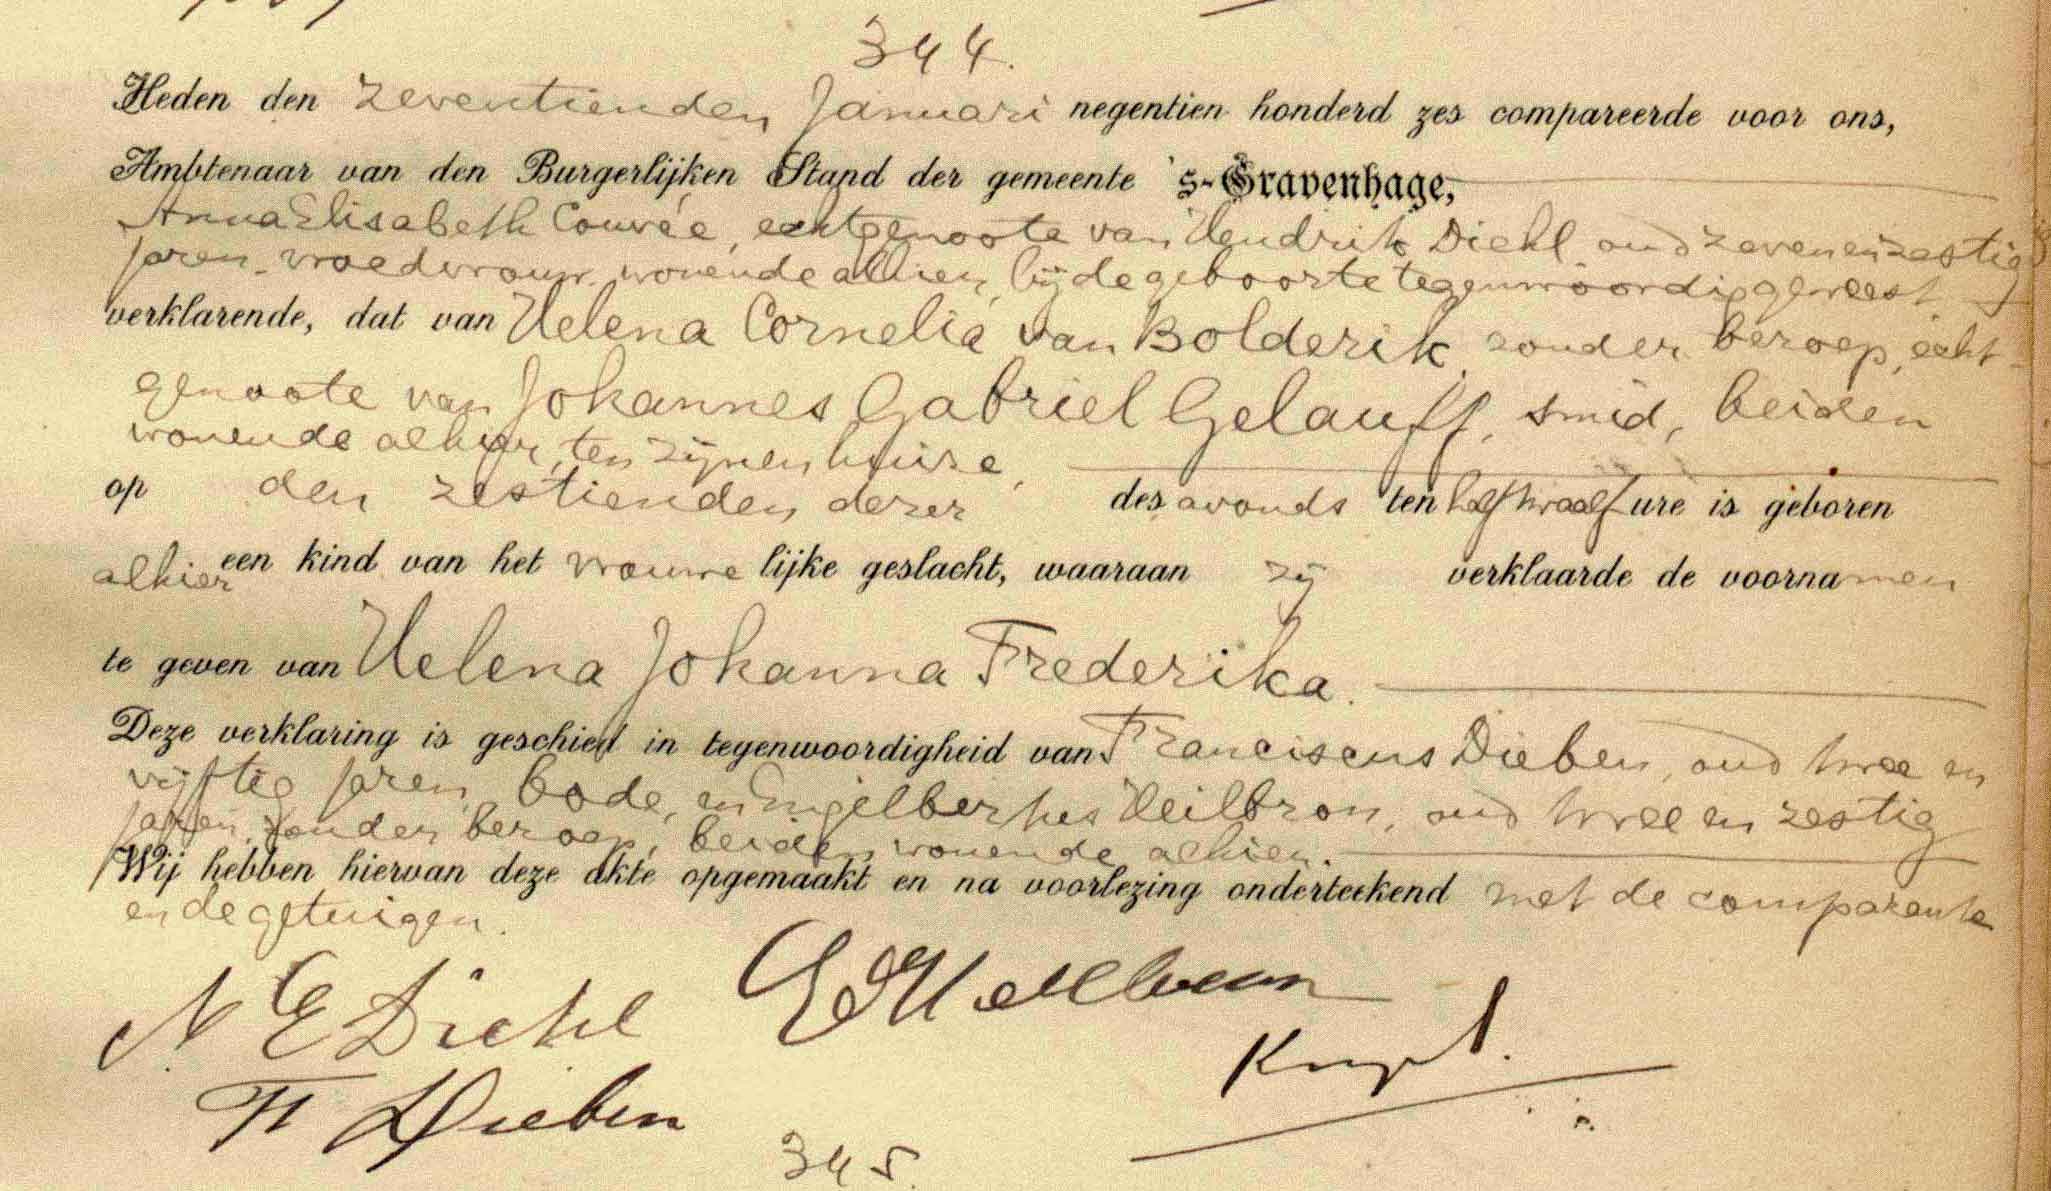 344.
Heden den zeventienden Januari negentien honderd zes compareerde voor ons,
Ambtenaar van den Burgerlijken Stand der gemeente 's-Gravenhage,
Anna Elisabeth Couvée, echtgenoote van Hendrik Diehl, oud zevenenzestig
jaren, vroedvrouw, wonende alhier, bij de geboorte tegenwoordig geweest,
verklarende, dat van Helena Cornelia van Bolderik, zonder beroep, echt-
genoote van Johannes Gabriel Gelauff, smid, beiden
wonende alhier, ten zijnen huize,
op den zestienden dezer des avonds ten half twaalf ure is geboren
alhier een kind van het vrouwelijke geslacht, waaraan zij verklaarde de voornamen
te geven van Helena Johanna Frederika.
Deze verklaring is geschied in tegenwoordigheid van Franciscus Dieben, oud twee en
vijftig jaren, bode, en Engelbertus Heilbron, oud twee en zestig
jaren, zonder beroep, beiden wonende alhier.
Wij hebben hiervan deze akte opgemaakt en na voorlezing onderteekend met de comparante
en de getuigen.
A E Diehl
F Dieben
345.